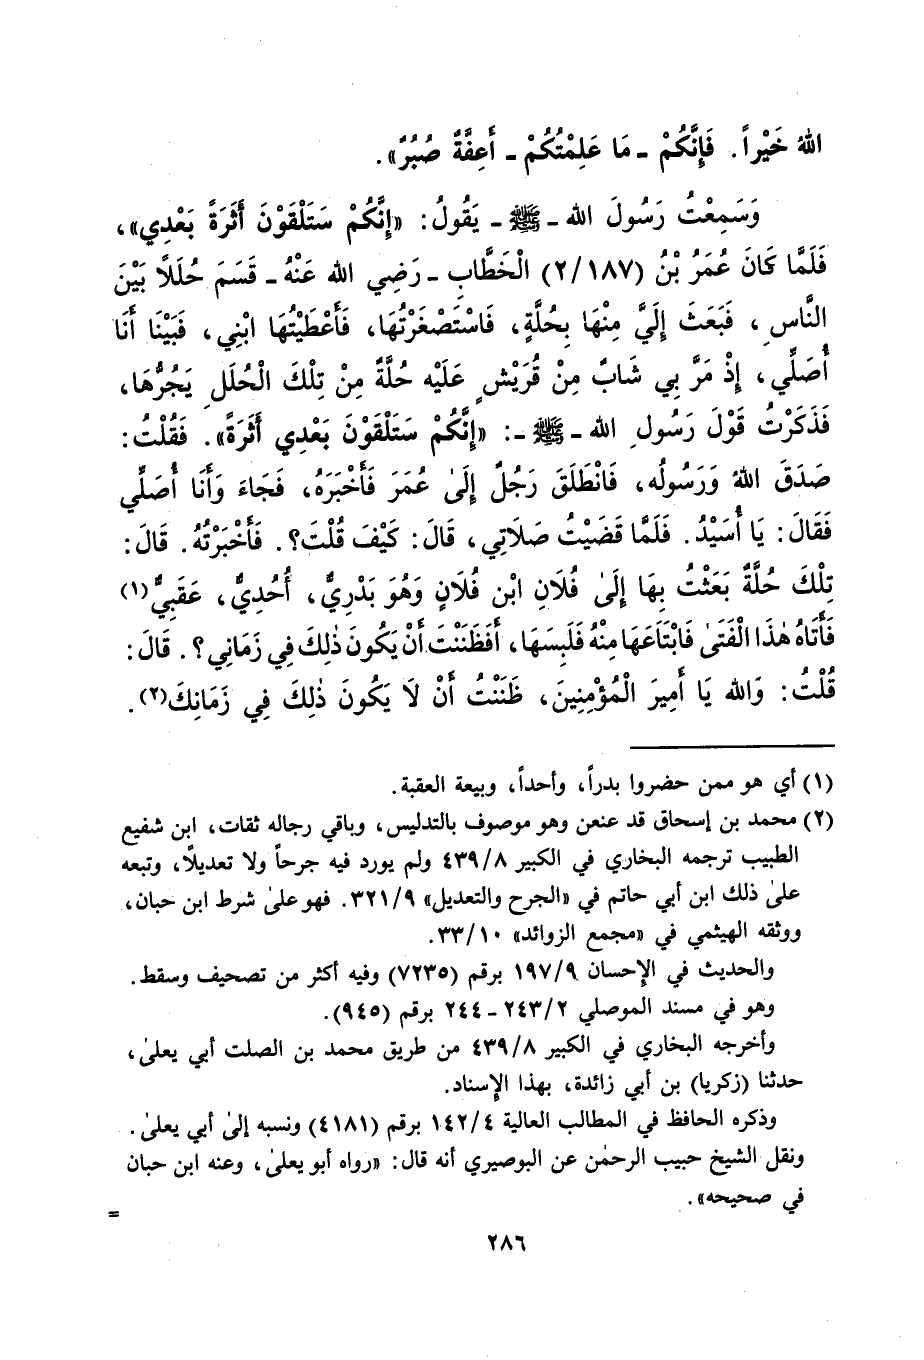 اللهُ خَيْراً. فَإِنَّكُمْ - مَا عَلِمْتُكُمْ - أَعِفَّةٌ صُبُرٌ».
وَسَمِعْتُ رَسُولَ الله - ﷺ - يَقُولُ: «إِنَّكُمْ سَتَلْقَوْنَ أَثَرَةً بَعْدِي»،
فَلَمَّا كَانَ عُمَرُ بْنُ (٢/١٨٧) الْخَطَّابِ - رَضِي الله عَنْهُ - قَسَمَ حُلَلاً بَيْنَ
النَّاسِ، فَبَعَثَ إِلَيَّ مِنْهَا بِحُلَّةٍ، فَاسْتَصْغَرْتُهَا، فَأَعْطَيْتُهَا ابْنِي، فَبَيْنَا أَنَا
أُصَلِّي، إِذْ مَرَّ بِي شَابٌّ مِنْ قُرَيْشٍ عَلَيْه حُلَّةٌ مِنْ تِلْكَ الْحُلَلِ يَجُرُّهَا،
فَذَكَرْتُ قَوْلَ رَسُولِ الله - ﷺ -: «إِنَّكُمْ سَتَلْقَوْنَ بَعْدِي أَثَرَةً». فَقُلْتُ:
صَدَقَ اللهُ وَرَسُولُه، فَانْطَلَقَ رَجُلٌ إِلَىٰ عُمَرَ فَأَخْبَرَهُ، فَجَاءَ وَأَنَا أُصَلِّي
فَقَالَ: يَا أُسَيْدُ. فَلَمَّا قَضَيْتُ صَلاَتِي، قَالَ: كَيْفَ قُلْتَ؟. فَأَخْبَرْتُهُ. قَالَ:
تِلْكَ حُلَّةٌ بَعَثْتُ بِهَا إِلَىٰ فُلَانِ ابْنِ فُلَانٍ وَهُوَ بَدْرِيٌّ، أُحُدِيٌّ، عَقَبِيٌّ(١)
فَأَتَاهُ هٰذَا الْفَتَىٰ فَابْتَاعَهَا مِنْهُ فَلَبِسَهَا، أَفَظَنَنْتَ أَنْ يَكُونَ ذٰلِكَ فِي زَمَانِي؟. قَالَ:
قُلْتُ: وَالله يَا أَمِيرَ الْمُؤْمِنِينَ، ظَنَنْتُ أَنْ لَا يَكُونَ ذٰلِكَ فِي زَمَانِكَ(٢).
(١) أي هو ممن حضروا بدراً، وأحداً، وبيعة العقبة.
(٢) محمد بن إسحاق قد عنعن وهو موصوف بالتدليس، وباقي رجاله ثقات، ابن شفيع
الطبيب ترجمه البخاري في الكبير ٤٣٩/٨ ولم يورد فيه جرحاً ولا تعديلًا، وتبعه
علىٰ ذلك ابن أبي حاتم في «الجرح والتعديل» ٣٢١/٩. فهو علىٰ شرط ابن حبان،
ووثقه الهيثمي في «مجمع الزوائد» ٣٣/١٠.
والحديث في الإحسان ١٩٧/٩ برقم (٧٢٣٥) وفيه أكثر من تصحيف وسقط.
وهو في مسند الموصلي ٢٤٣/٢ - ٢٤٤ برقم (٩٤٥).
وأخرجه البخاري في الكبير ٤٣٩/٨ من طريق محمد بن الصلت أبي يعلىٰ،
حدثنا (زكريا) بن أبي زائدة، بهذا الإسناد.
وذكره الحافظ في المطالب العالية ١٤٢/٤ برقم (٤١٨١) ونسبه إلىٰ أبي يعلىٰ.
ونقل الشيخ حبيب الرحمٰن عن البوصيري أنه قال: «رواه أبو يعلىٰ، وعنه ابن حبان
في صحيحه».
=
٢٨٦